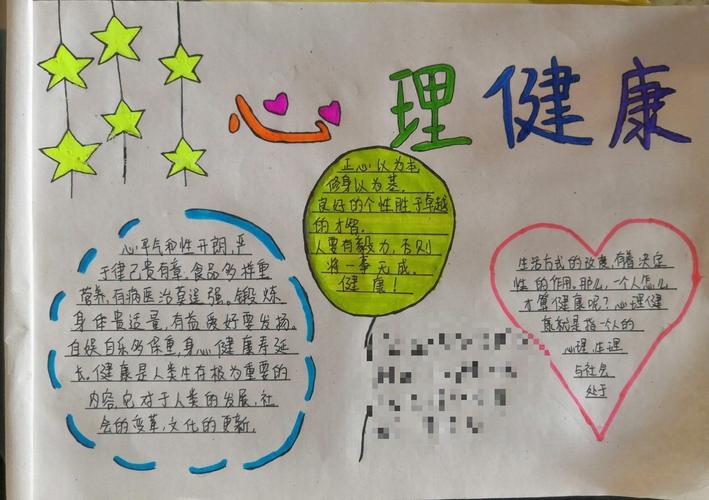 心理健康
正心以为本,
修身以为基,
良好的个性胜于卓越
的才智。
人要有毅力,否则
将一事无成。
健康!
心平气和性开朗,严
于律己贵有章,食品多样重
营养,有病医治莫逞强。锻炼
身体贵适量,有益爱好要发扬。
自娱自乐多保重,身心健康寿延
长。健康是人类生存极为重要的
内容,它对于人类的发展,社
会的变革,文化的更新,
生活方式的改变,有着决定
性的作用。那么,一个人怎么
才算健康呢?心理健
康就是指个人的
心理、生理
与社会
处于